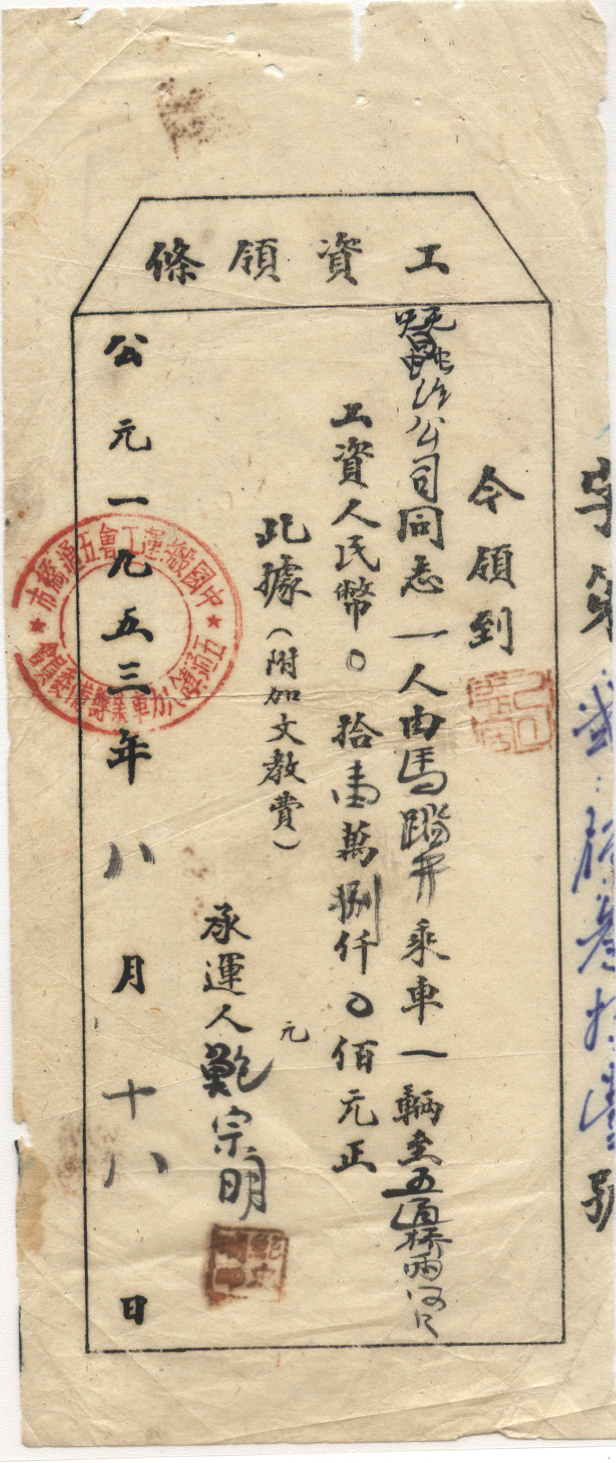 工資領條
字第 號
今領到
公司同志一人由馬踏井乘車一輛至五通桥兩河口
工資人民幣〇拾壹萬捌仟〇佰元正
此據（附加文教費） 元
承運人鮑宗明
公元一九五三年八月十八日
中國搬運工會五通橋市